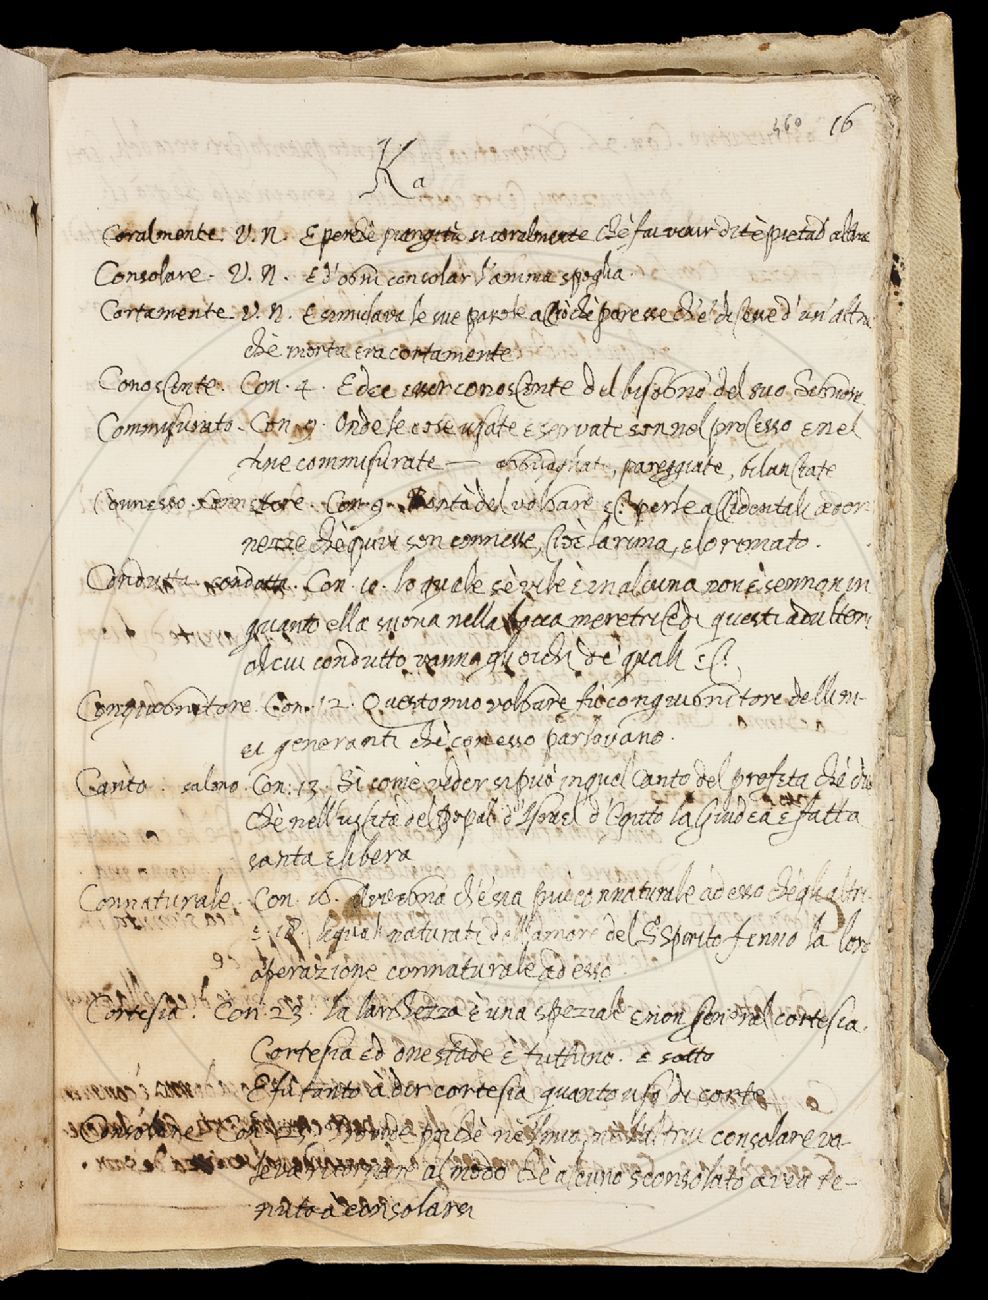 160 16
Ka
Coralmente. V. N. E perchè piangi tu si coralmente chè fai venir di tè pietad' altrui
Consolare. V. N. E d'ogni consolar l'anima spoglia
Cortamente. V. N. E simulava le sue parole acciò chè paresse chè dicesse d' un' altra
chè morta era cortamente
Conoscente. Con. 4. E dee esser conoscente del bisogno del suo Signore
Commisurato. Con. 9. Onde le cose usate e servate son nel processo e nel
fine commisurate — agguagliate, pareggiate, bilanciate
Connesso. Con. 9. Bontà del volgare &c. per le accidentali ador-
nezze chè quivi son connesse, cioè la rima, e lo ritmato.
Condutta. condotta. Con. 10. lo quale sè vile è in alcuna non è sennon in
quanto ella suona nella bocca meretrice di questi adulteri
al cui condutto vanno gli ciechi dè quali &c.
Congiugnitore. Con. 12. Questo mio volgare fù congiugnitore delli mi-
ei generanti chè con esso parlavano.
Canto. salmo. Con. 13. Si come veder si può in quel Canto del profeta chè dice
chè nell' uscita del Popol d' Israel d' Egitto la Giudea è fatta
santa e libera
Connaturale. Con. 16. Avvegna chè sia più connaturale ad esso chè gli altri.
E 18. li quali naturati dell' amore del S. Spirito fanno la loro
operazione connaturale ad esso.
Cortesia. Con. 23. La larghezza è una speziale e non general cortesia.
Cortesia ed onestade è tutt' uno. e sotto
E fù tanto à dir cortesia quanto uso di corte
Consolare Con. 23. poichè nel mio, nè l' altrui consolare va-
lea ritornare al modo chè alcuno sconsolato avea te-
nuto à consolarsi